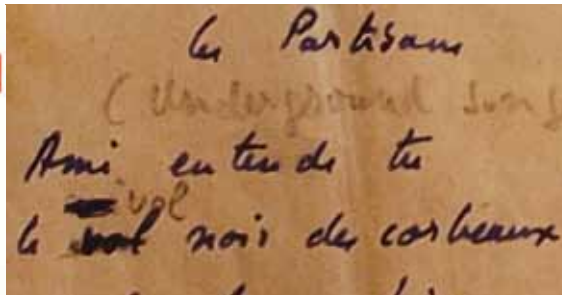 les Partisans
(Underground song
Ami entends tu
vol
le vol noir des corbeaux